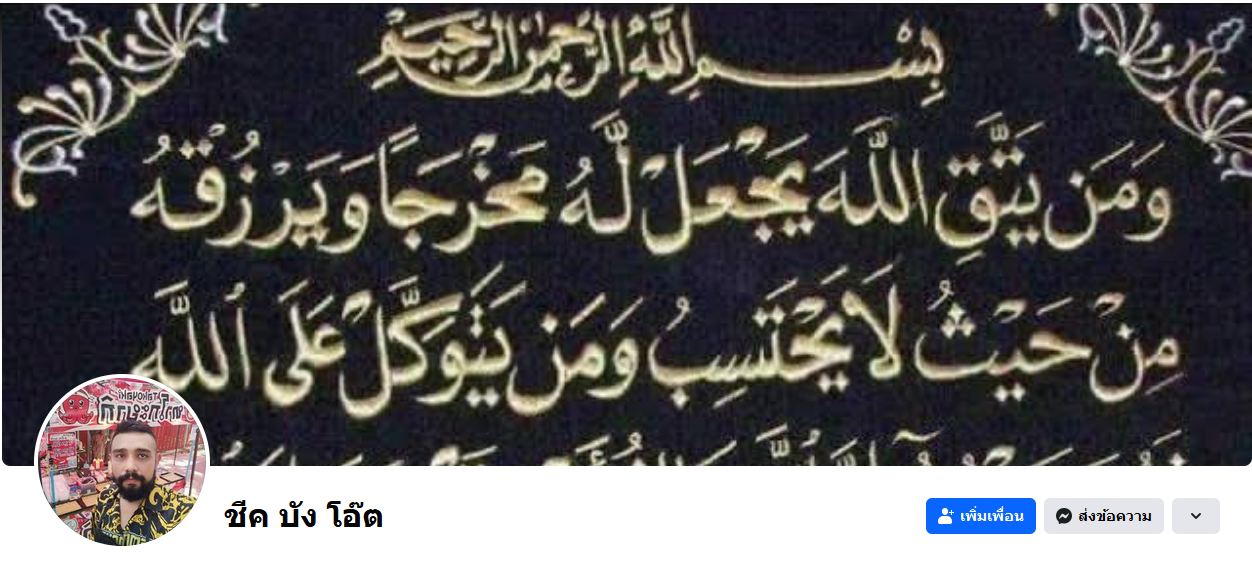 بِسْمِ اللَّهِ الرَّحْمَنِ الرَّحِيمِ
وَمَن يَتَّقِ اللَّهَ يَجْعَل لَّهُ مَخْرَجًا وَيَرْزُقْهُ
مِنْ حَيْثُ لَا يَحْتَسِبُ وَمَن يَتَوَكَّلْ عَلَى اللَّهِ
TAKOYAKI
ชีค บัง โอ๊ต
เพิ่มเพื่อน
ส่งข้อความ